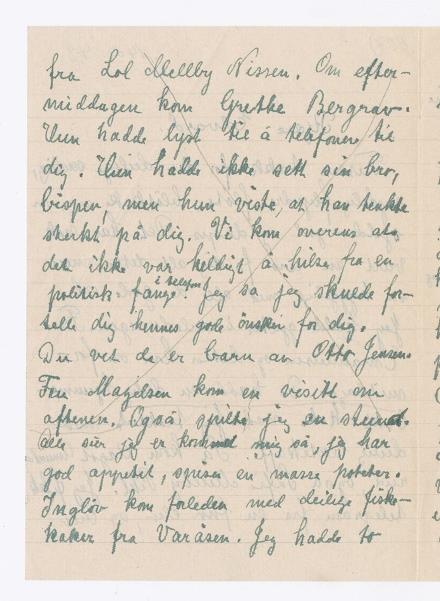 fra Lol Mellby Nissen. Om efter-
middagen kom Grethe Bergrav.
Hun hadde lyst til å telefonere til
dig. Hun hadde ikke sett sin bror,
bispen, men hun viste, at han tenkte
sterkt på dig. Vi kom overens at
det ikke var heldigt å hilse fra en
politisk fange i telefon. Jeg sa jeg skulde for-
telle dig hennes gode ønsker for dig.
Du vet de er barn av Otto Jensen.
Fru Magelsen kom en visitt om
aftenen. Også spilte jeg en
Alle sier jeg er kommet mig så, jeg har
god appetit, spiser en masse poteter.
Ingløv kom forleden med deilige fiske-
kaker fra Varåsen. Jeg hadde to